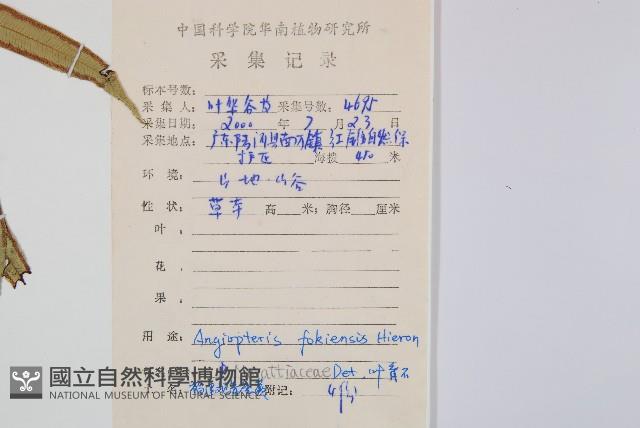 中国科学院华南植物研究所
采集记录
标本号数：
采集人：叶华谷等 采集号数：4695
采集日期：2000 年 7 月 23 日
采集地点：广东阳 镇 自然保
护区 海拔 450 米
环境：山地·山谷
性状：草本 高 米；胸径 厘米
叶
花
果：
用途：Angiopteris fokiensis Hieron
attiaceae Det. 叶育石
附记：4份
國立自然科學博物館
NATIONAL MUSEUM OF NATURAL SCIENCE